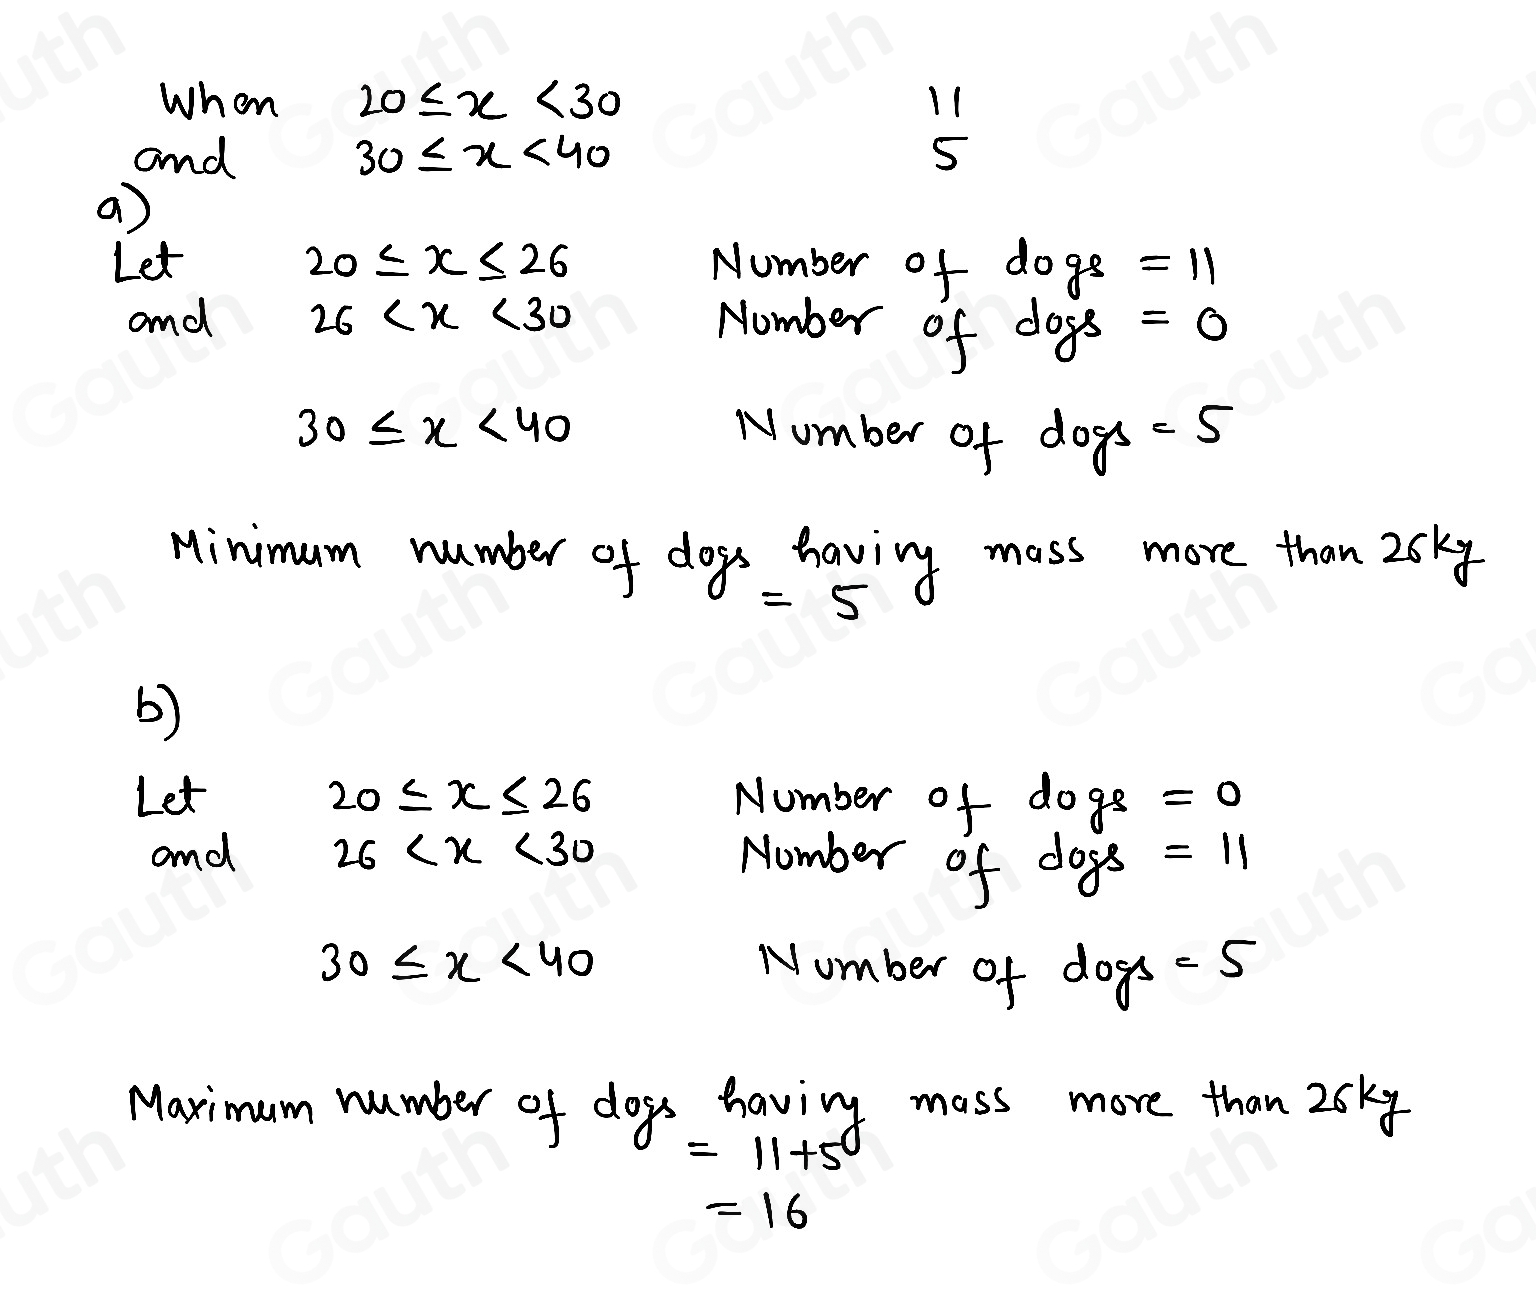 When 20 ≤ x < 30 11
and 30 ≤ x < 40 5
a)
Let 20 ≤ x ≤ 26 Number of dogs = 11
and 26 < x < 30 Number of dogs = 0
30 ≤ x < 40 Number of dogs = 5
Minimum number of dogs having mass more than 26kg
= 5
b)
Let 20 ≤ x ≤ 26 Number of dogs = 0
and 26 < x < 30 Number of dogs = 11
30 ≤ x < 40 Number of dogs = 5
Maximum number of dogs having mass more than 26kg
= 11+5
= 16